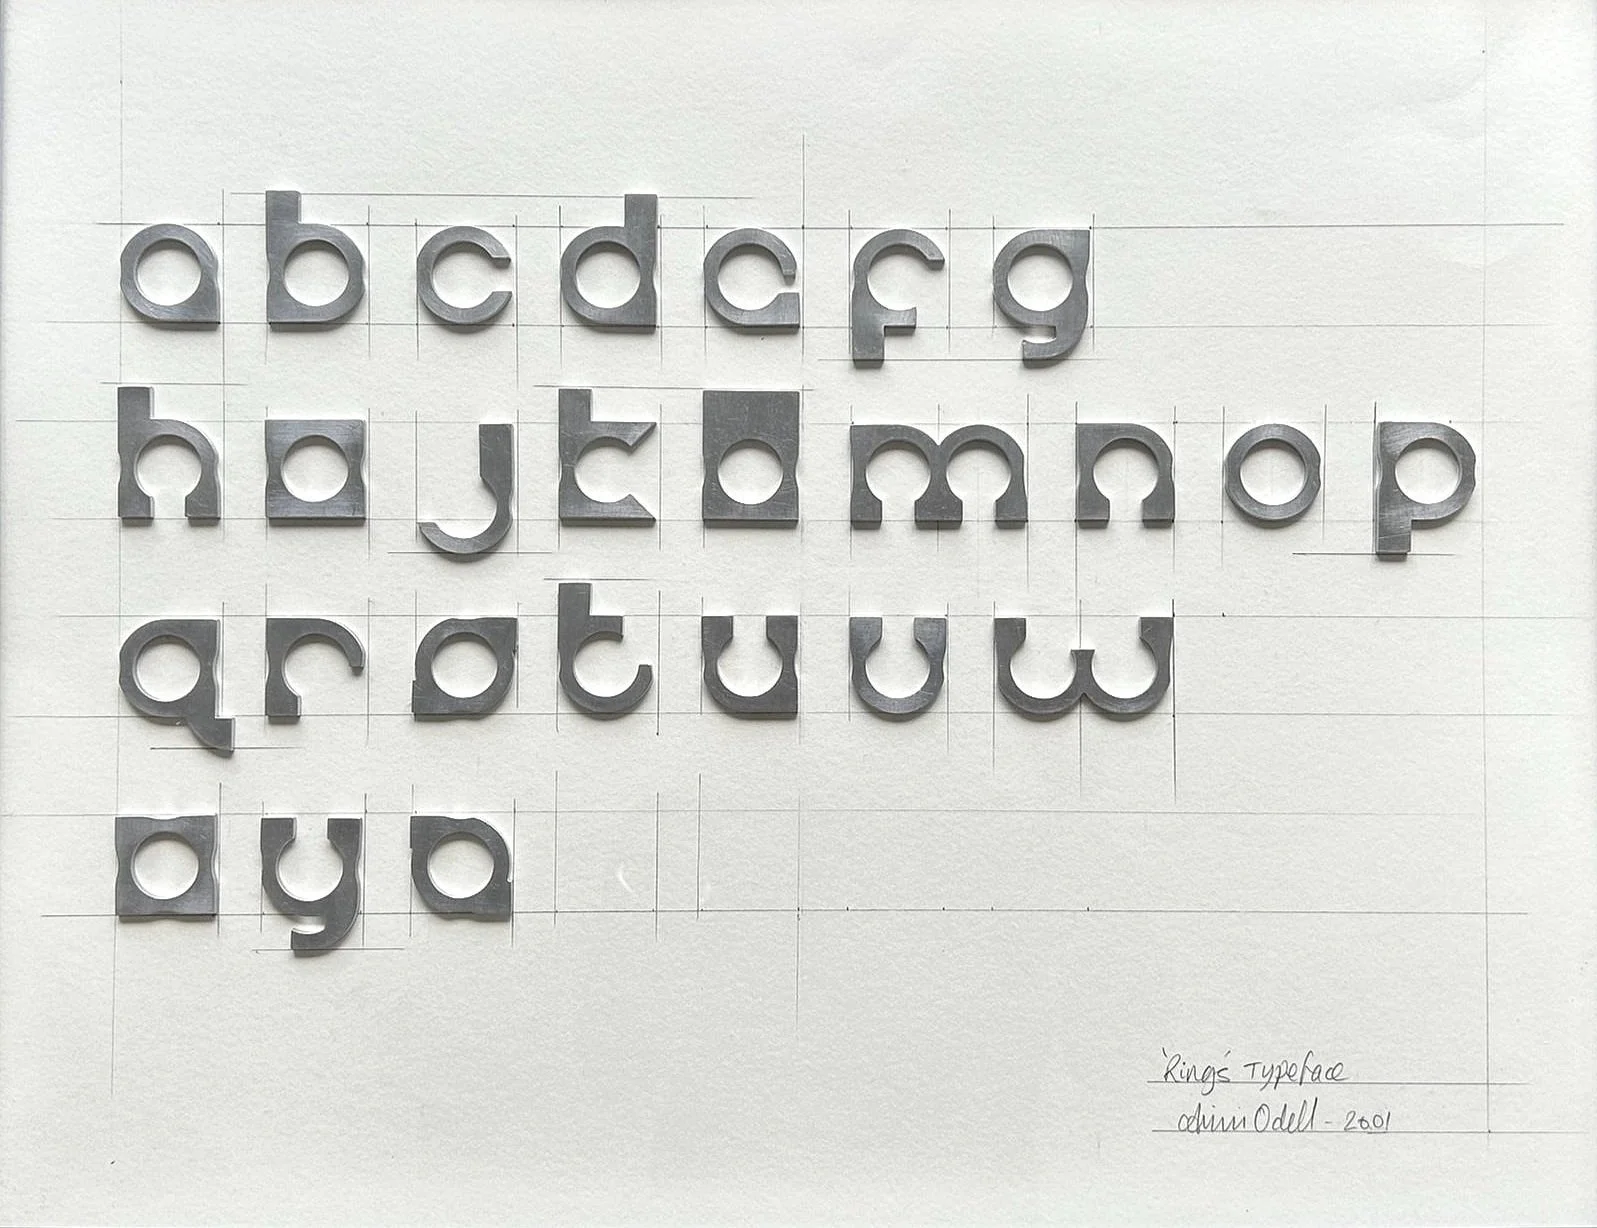 abcdefg
hijklmnop
qrstuvw
xyz
'Rings' Typeface
Odell - 2001